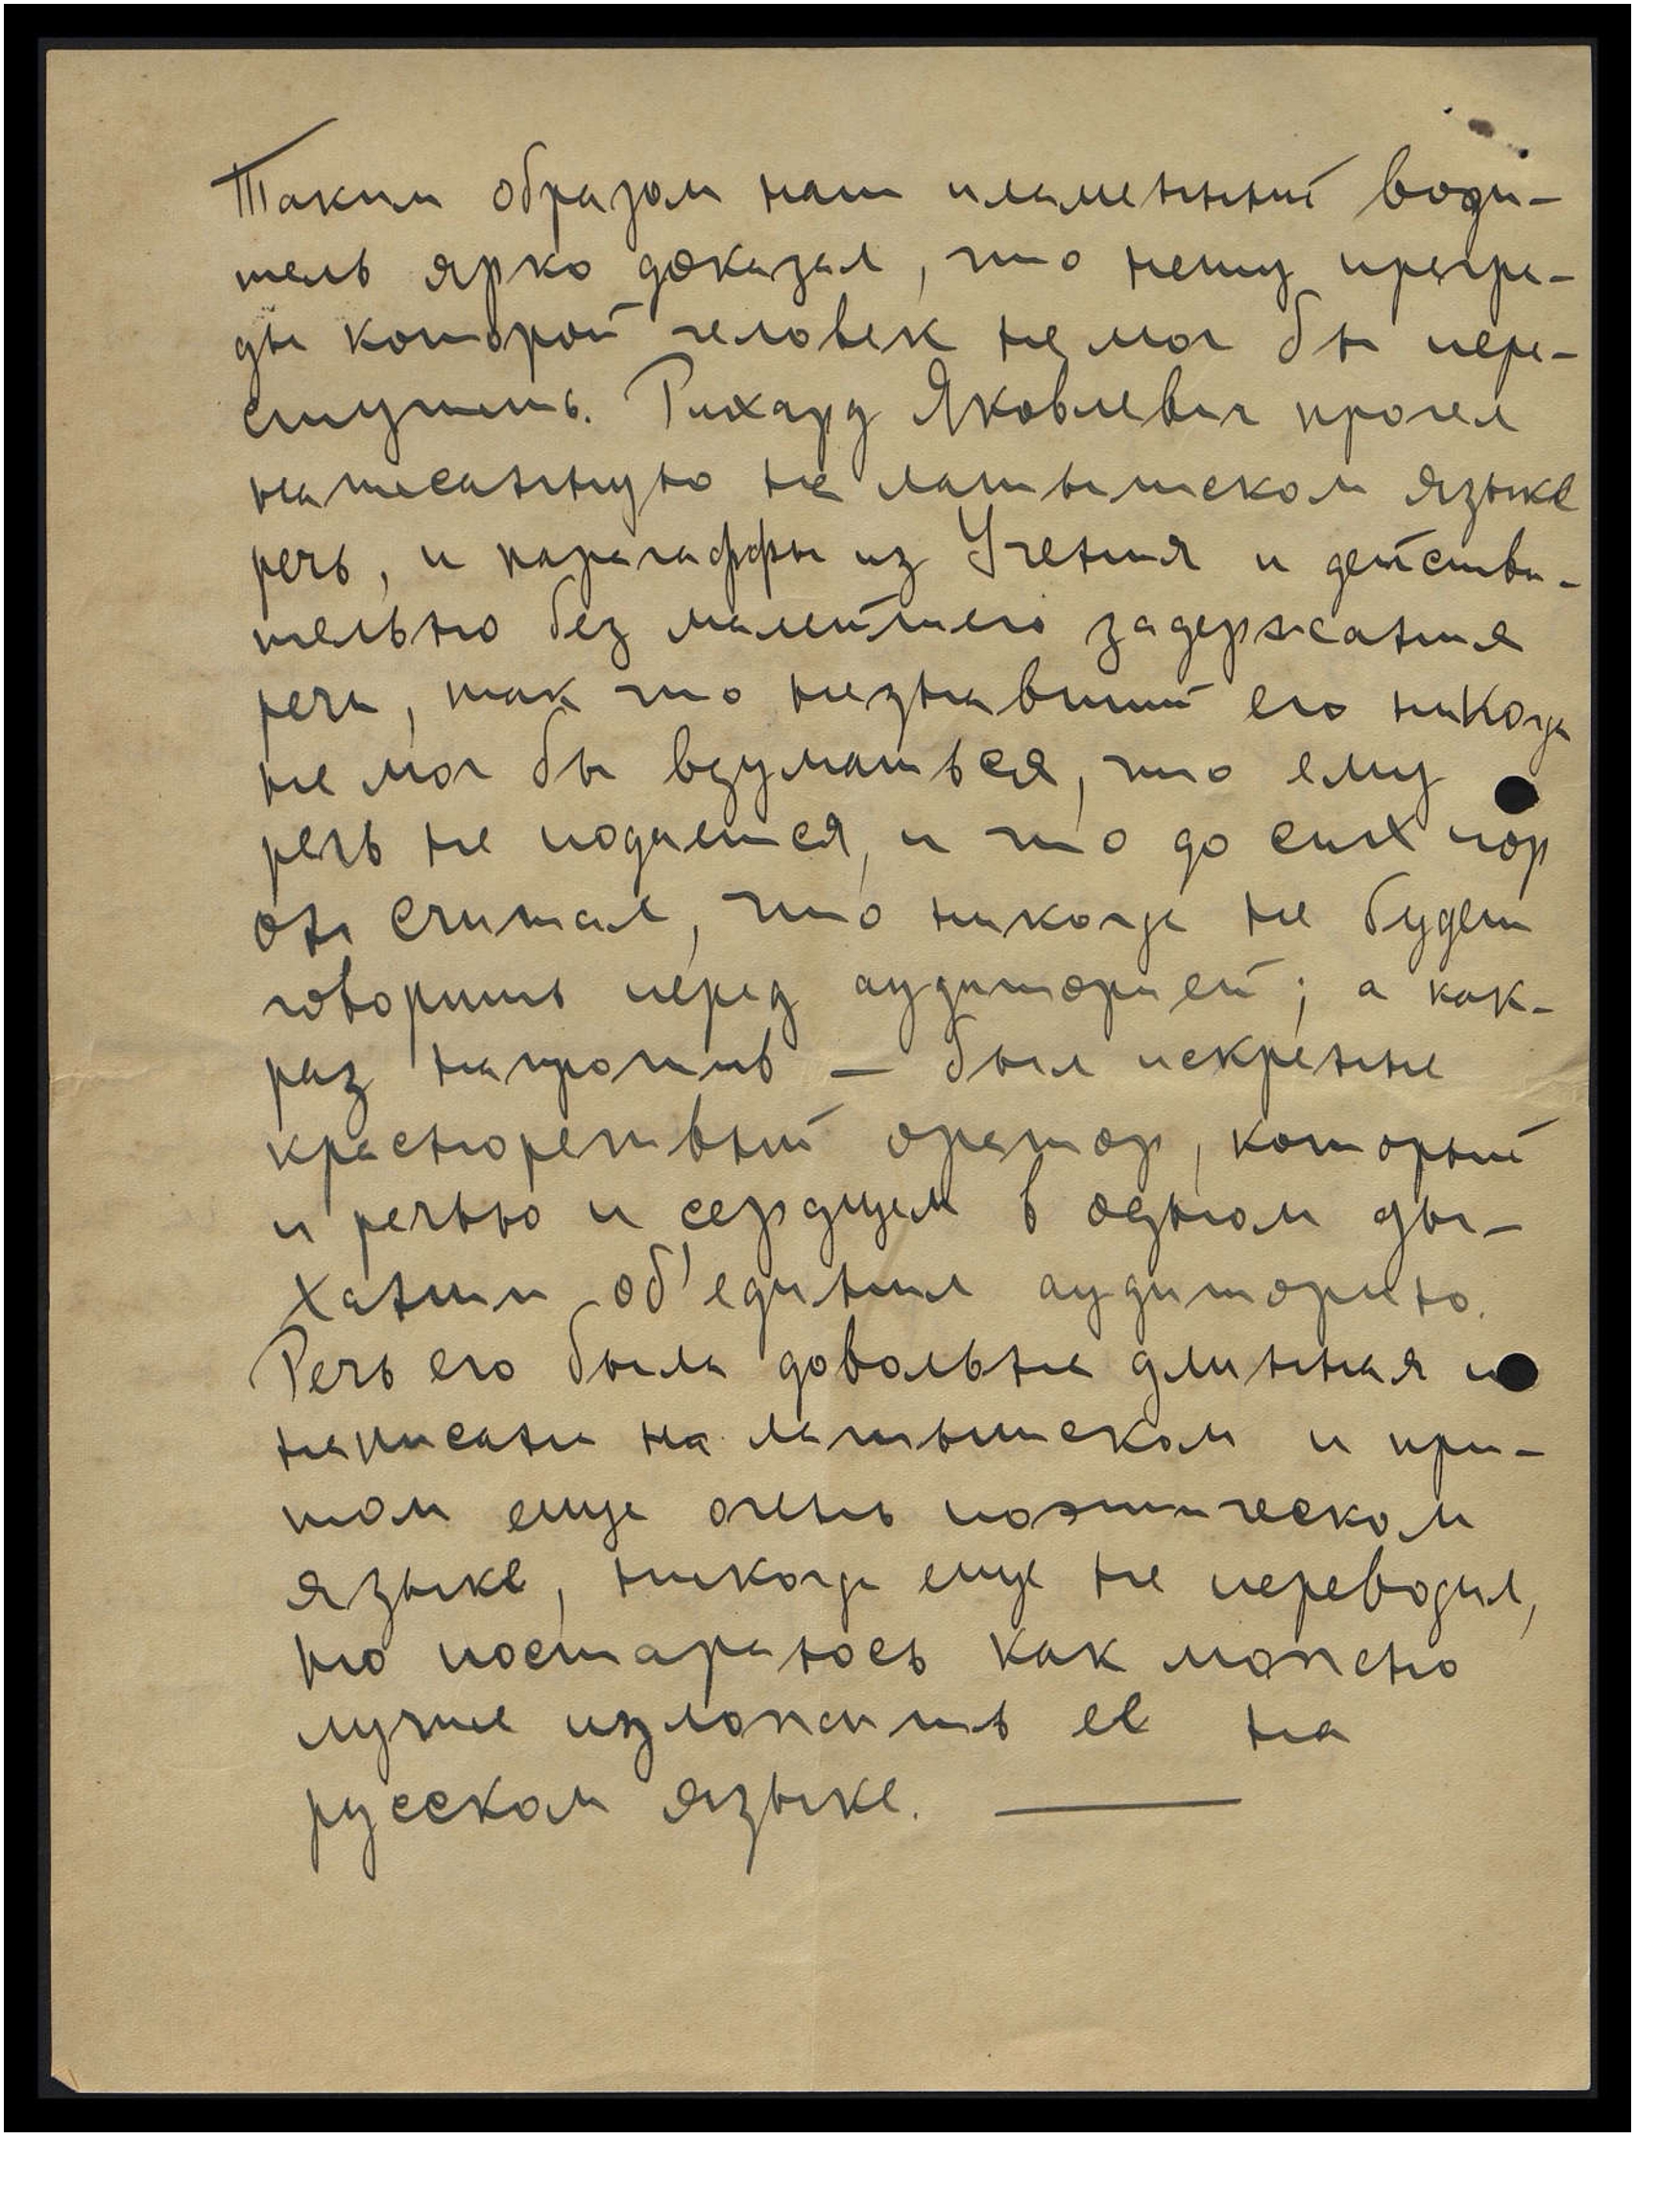 Таким образом наш пламенный води-
тель ярко доказал, что нету прегра-
ды которой человек не мог бы пере-
ступить. Рихард Яковлевич прочел
написанную на латышском языке
речь, и параграффы из Учения и действи-
тельно без малейшего задержания
речи, так что незнавший его никогда
не мог бы вздуматься, что ему
речь не подается, и что до сих пор
он считал, что никогда не будет
говорить перед аудиторией; а как-
раз напротив — был искренне
красноречивый оратор, который
и речью и сердцем в одном ды-
хании об'единил аудиторию.
Речь его была довольна длинная и
написана на латышском и при-
том еще очень поэтическом
языке, никогда еще не переводил,
но постараюсь как можно
лучше изложить ее на
русском языке. —